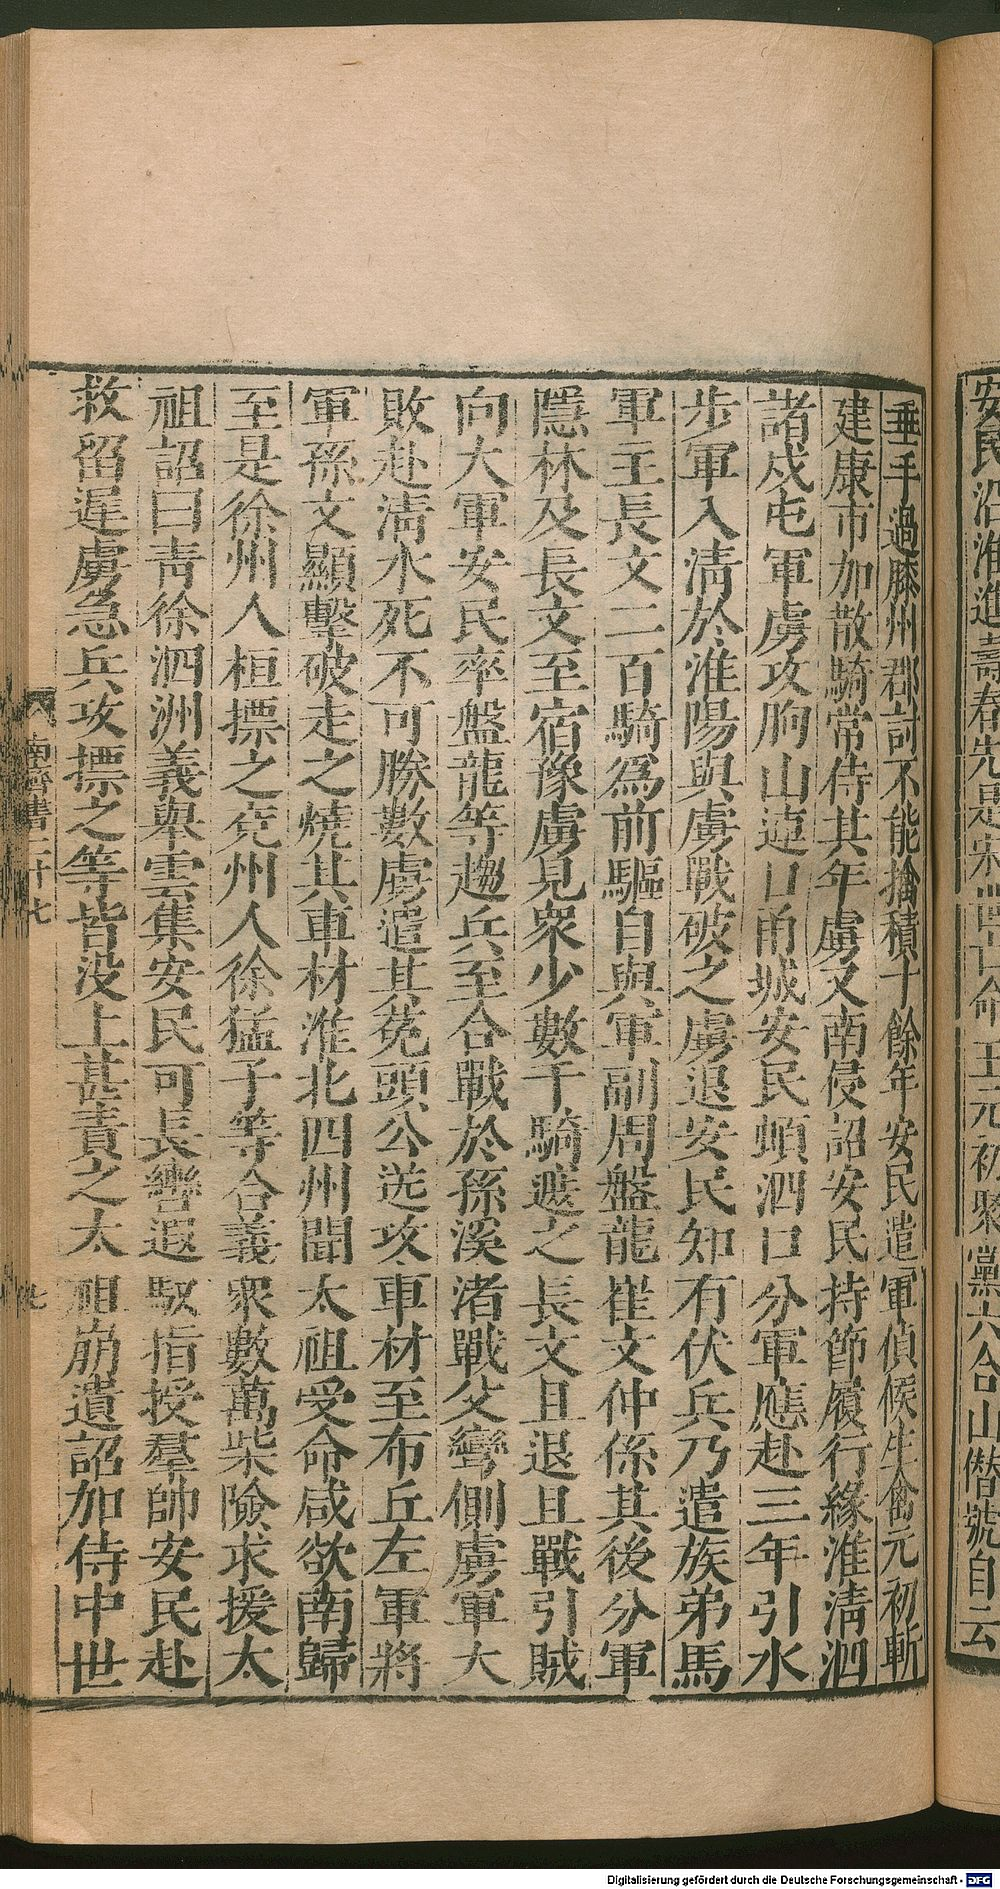 安民沿淮進壽春先是宋世亡命王元初聚黨六合山僭號自云
垂手過膝州郡討不能擒積十餘年安民遣軍偵候生禽元初斬
建康市加散騎常侍其年虜又南侵詔安民持節履行緣淮清泗
諸戍屯軍虜攻朐山連口甬城安民頓泗口分軍應赴三年引水
步軍入清於淮陽與虜戰破之虜退安民知有伏兵乃遣族弟馬
軍主長文二百騎爲前驅自與軍副周盤龍崔文仲係其後分軍
隱林及長文至宿豫虜見衆少數千騎遮之長文且退且戰引賊
向大軍安民率盤龍等趨兵至合戰於孫溪渚戰父彎側虜軍大
敗赴清水死不可勝數虜遣其莬頭公送攻車材至布丘左軍將
軍孫文顯擊破走之燒其車材淮北四州聞太祖受命咸欲南歸
至是徐州人桓摽之兗州人徐猛子等合義衆數萬柴險求援太
祖詔曰靑徐泗洲義舉雲集安民可長轡遐馭指授羣帥安民赴
救留遲虜急兵攻摽之等皆没上甚責之太祖崩遺詔加侍中世
南齊書二十七
七
Digitalisierung gefördert durch die Deutsche Forschungsgemeinschaft - DFG